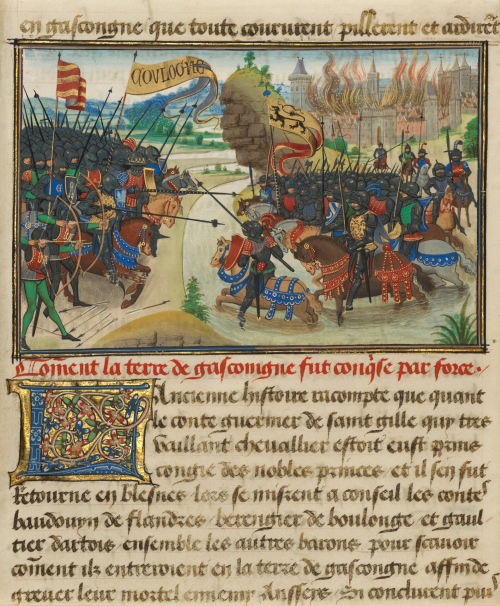 en gascongne que toute coururent pillerent et ardirēt
COVLOGNE
Cōment la terre de gascongne fut conq̄se par force.
L'Ancienne histoire racompte que quant
le conte guermer de saint gille quy tres
vaillant chevallier estoit eust prins
congie des nobles princes et il sen fut
Retourne en blesnes lors se misrent a conseil les conte
baudouyn de flandres berengier de boulonge et gaul
tier dartois ensemble les autres barons pour scavoir
cōment ilz entreroient en la terre de gascongne affin de
grever leur mortel ennemy Anssers. Si conclurent pur